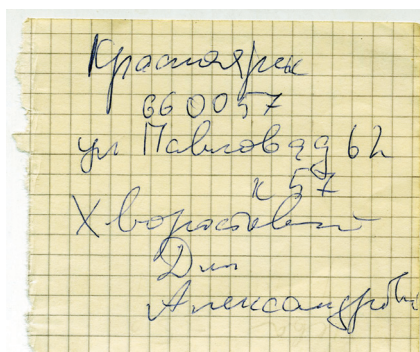 Красноярск
660057
ул Павлова д 62
к 57
Хворостовский
Дм
Александрови